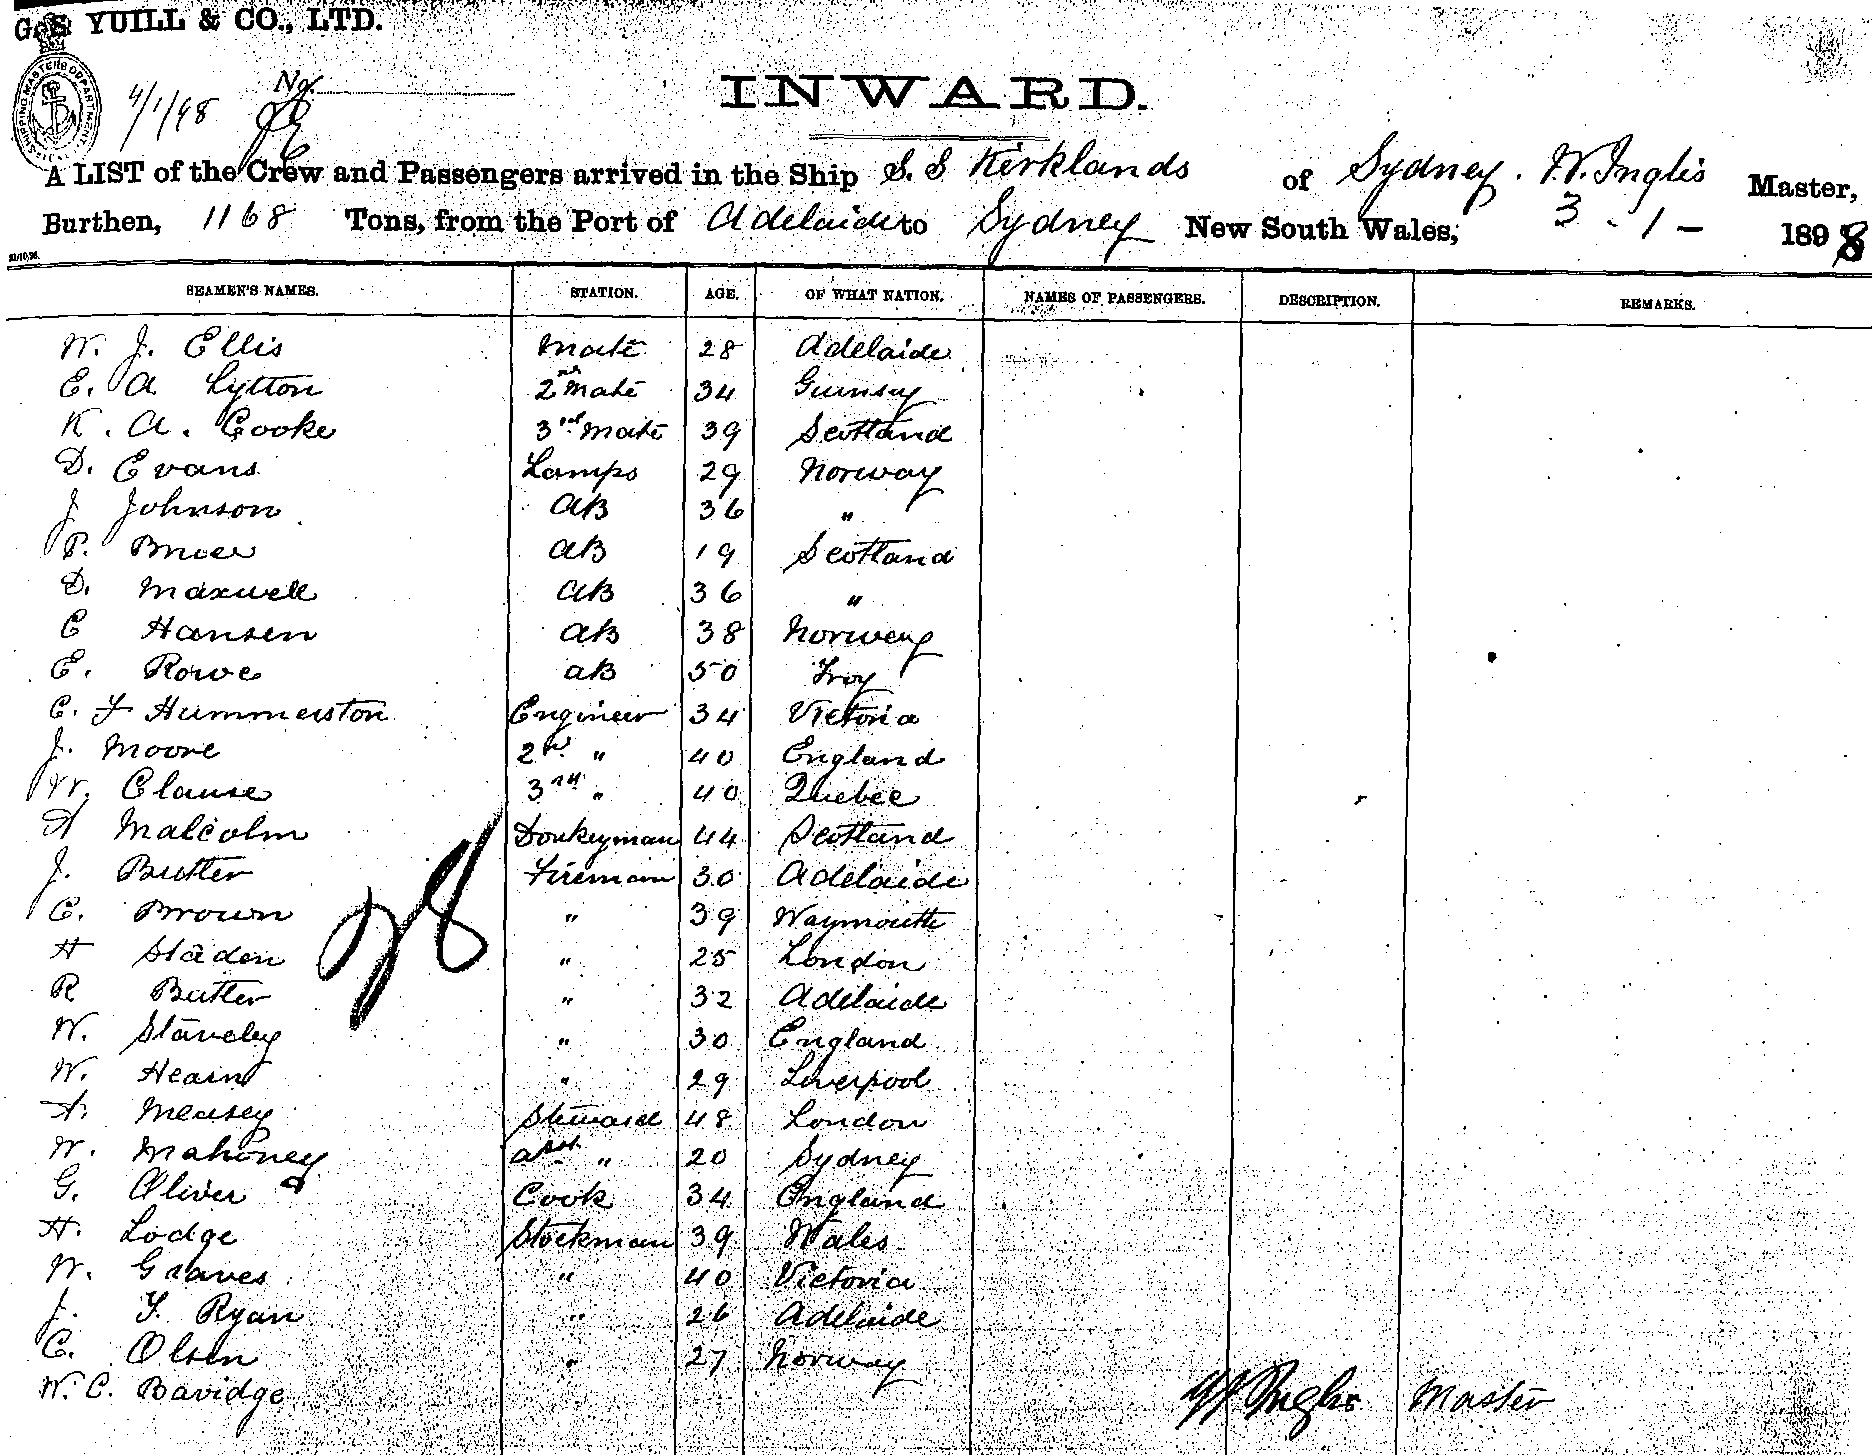 G. S. YUILL & CO., LTD.
SHIPPING MASTERS DEPARTMENT
4/1/98 No.
INWARD.
A LIST of the Crew and Passengers arrived in the Ship S. S Kirklands of Sydney. W. Inglis Master,
Burthen, 1168 Tons, from the Port of Adelaide to Sydney New South Wales, 3 - 1 - 1898
SEAMEN'S NAMES. STATION. AGE. OF WHAT NATION. NAMES OF PASSENGERS. DESCRIPTION. REMARKS.
W. J. Ellis Mate 28 Adelaide
E. A Lytton 2nd Mate 34 Gurnsey
K. A. Cooke 3rd Mate 39 Scotland
D. Evans Lamps 29 Norway
J Johnson AB 36 "
P. Bruce AB 19 Scotland
D. Maxwell AB 36 "
C Hansen AB 38 Norway
E. Rowe AB 50 Troy
C. F Hummerston Engineer 34 Victoria
J. Moore 2nd " 40 England
W. Clause 3rd " 40 Quebec
A Malcolm Donkeyman 44 Scotland
J. Butler Fireman 30 Adelaide
C. Brown " 39 Waymouth
H Staden " 25 London
R Butler " 32 Adelaide
W. Staveley " 30 England
W. Hearn " 29 Liverpool
A. Measey Steward 48 London
W. Mahoney asst " 20 Sydney
G. Oliver Cook 34 England
H. Lodge Stockman 39 Wales
W. Graves " 40 Victoria
J. F. Ryan " 26 Adelaide
C. Olsen " 27 Norway
W. C. Bavidge
W Inglis Master
28